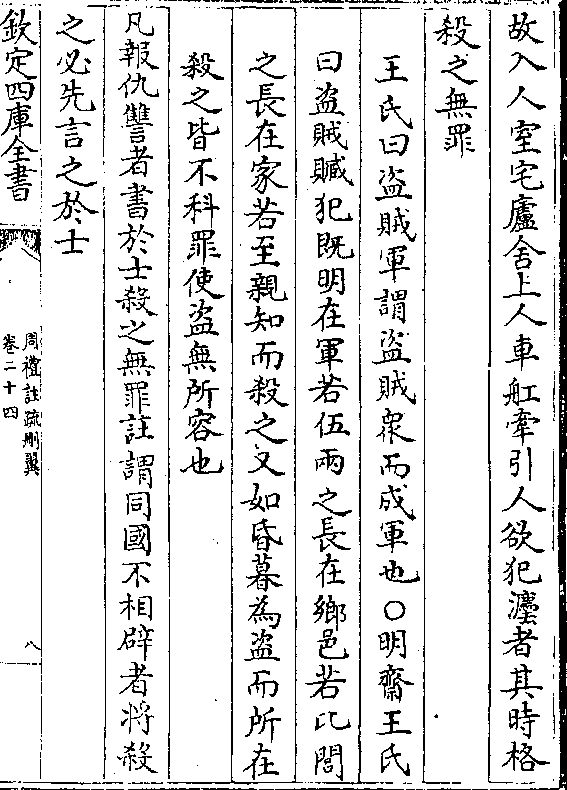 故入人室宅廬舍上人車舡牽引人欲犯灋者其時格
殺之無罪
王氏曰盗賊軍謂盗賊衆而成軍也○明齋王氏
曰盗賊贓犯既明在軍若伍兩之長在鄉邑若比閭
之長在家若至親知而殺之又如昏暮為盗而所在
殺之皆不科罪使盗無所容也
凡報仇讐者書於士殺之無罪註謂同國不相辟者將殺
之必先言之於士
欽定四庫全書
周禮註疏刪翼
卷二十四
八